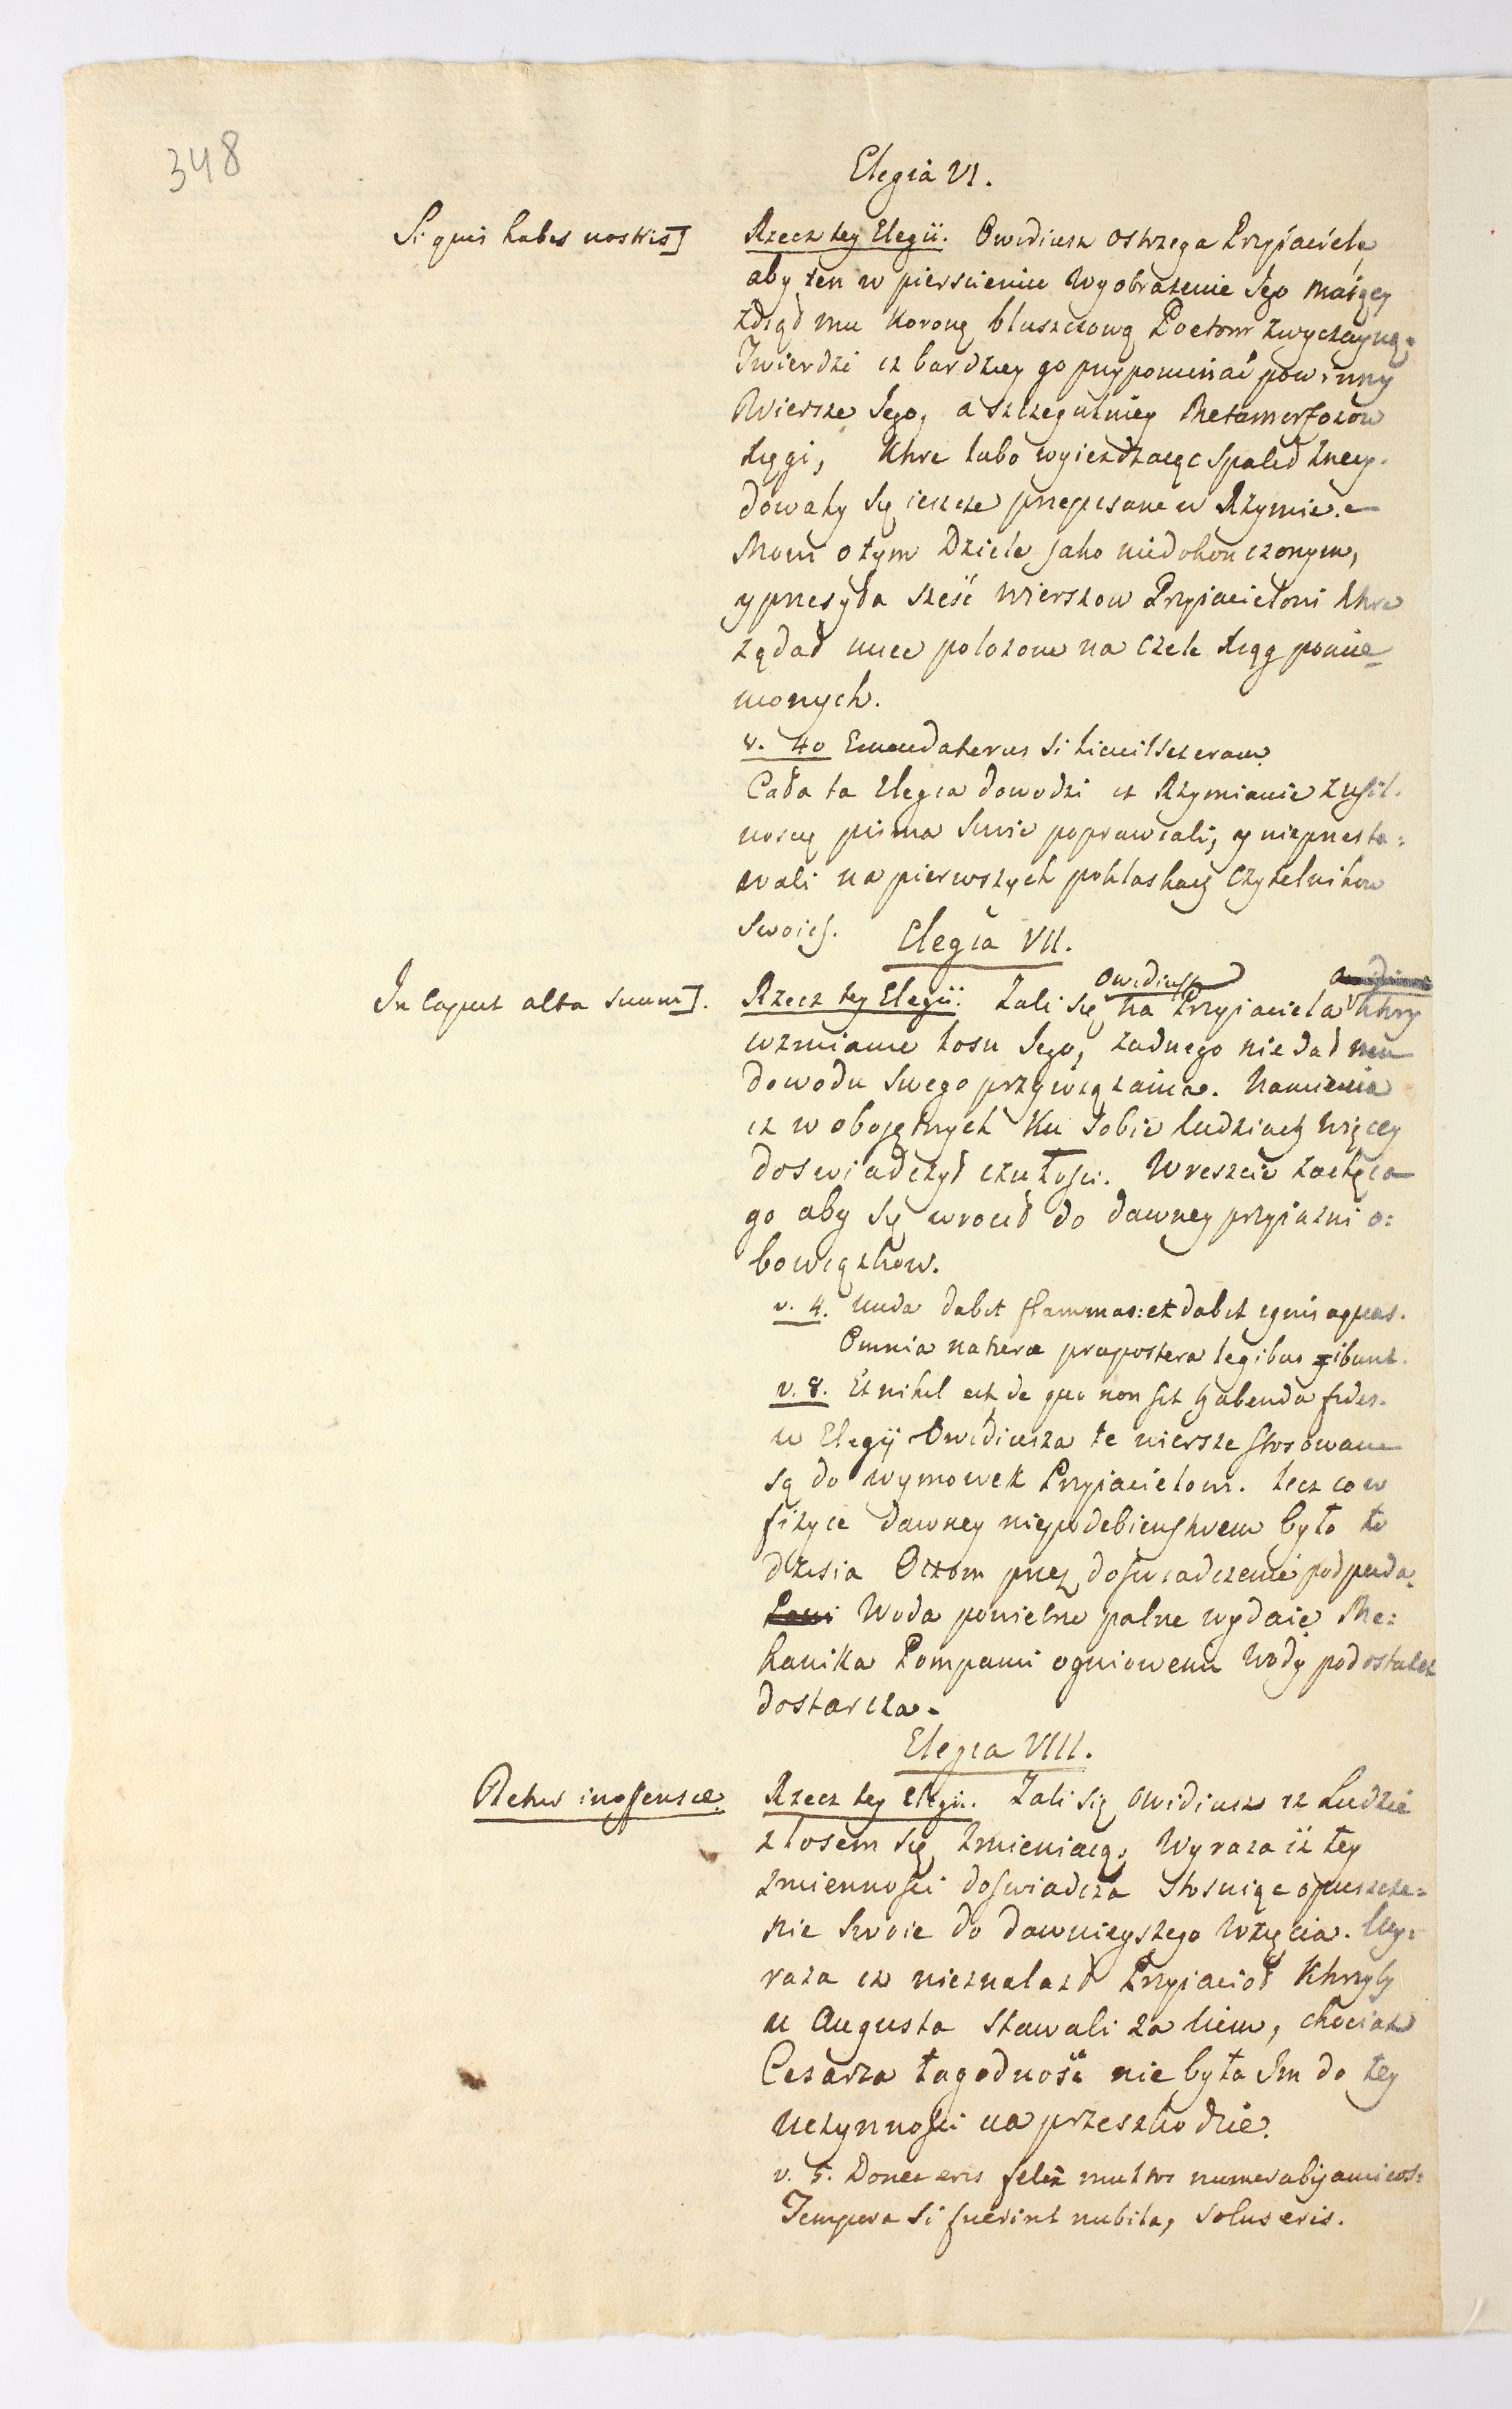 348
Elegia VI.
Si quis habes nostris]
Rzecz tey Elegii. Owidiusz ostrzega Przyiaciela
aby ten w pierscieniu Wyobrazenie Jego maiący
zdiął mu Koronę bluszczową Poetom zwyczayną.
Twierdzi iz bardziey go przypominać powinny
Wiersze Jego, a szczegulniey Metamorfozów
xięgi, Ktore lubo wyiezdzaiąc spalił znay-
dowały się ieszcze przepisane w Rzymie.
Mowi o tym Dziele jako niedokonczonym,
y przesyła sześć wierszow Przyiacielowi ktore
ządał miec polozone na czele xiąg pomie=
nionych.
v. 40 Emendaturus si licuisset eram.
Cała ta Elegia dowodzi iz Rzymianie z usil-
noscią pisma swoie poprawiali, y nieprzesta=
wali na pierwszych poklaskach Czytelnikow
swoich.
Elegia VII.
In caput alta suum].
Rzecz tey Elegii. Zali się Owidiusz na Przyiaciela ktory
wzmianie losu Jego, zadnego nie dał mu
dowodu swego przywiązania. Namienia
iz w obojętnych Ku sobie ludziach więcey
doswiadczył czułosci. Wreszcie zachęca
go aby się wrocił do dawney przyiazni o=
bowiązkow.
v. 4. Unda dabit flammas: et dabit ignis aquas.
Omnia naturæ præpostera legibus ibunt.
v. 8. Et nihil est de quo non sit habenda fides.
w Elegij Owidiusza te wiersze stosowane
są do wymowek Przyiacielowi. lecz co w
fizyce dawney niepodobienstwem było to
dzisia Oczom przez doswiadczenie podpada.
Woda powietrze palne wydaie Me=
hanika Pompami ogniowemi Wody podostatek
dostarcza.
Elegia VIII.
Detur inoffensæ.
Rzecz tey Elegii. Zali się Owidiusz iz Ludzie
z losem się zmieniaią, Wyraza iż tey
zmiennosci doswiadcza stosuiąc opuszcze=
nie swoie do dawnieyszego wzięcia. Wy=
raza iz nieznalazł Przyiacioł Ktorzyby
u Augusta stawali za niem, chociaz
Cesarza łagodność nie była Im do tey
uczynnosci na przeszkodzie.
v. 5. Donec eris felix multos numerabis amicos:
Tempora si fuerint nubila, solus eris.